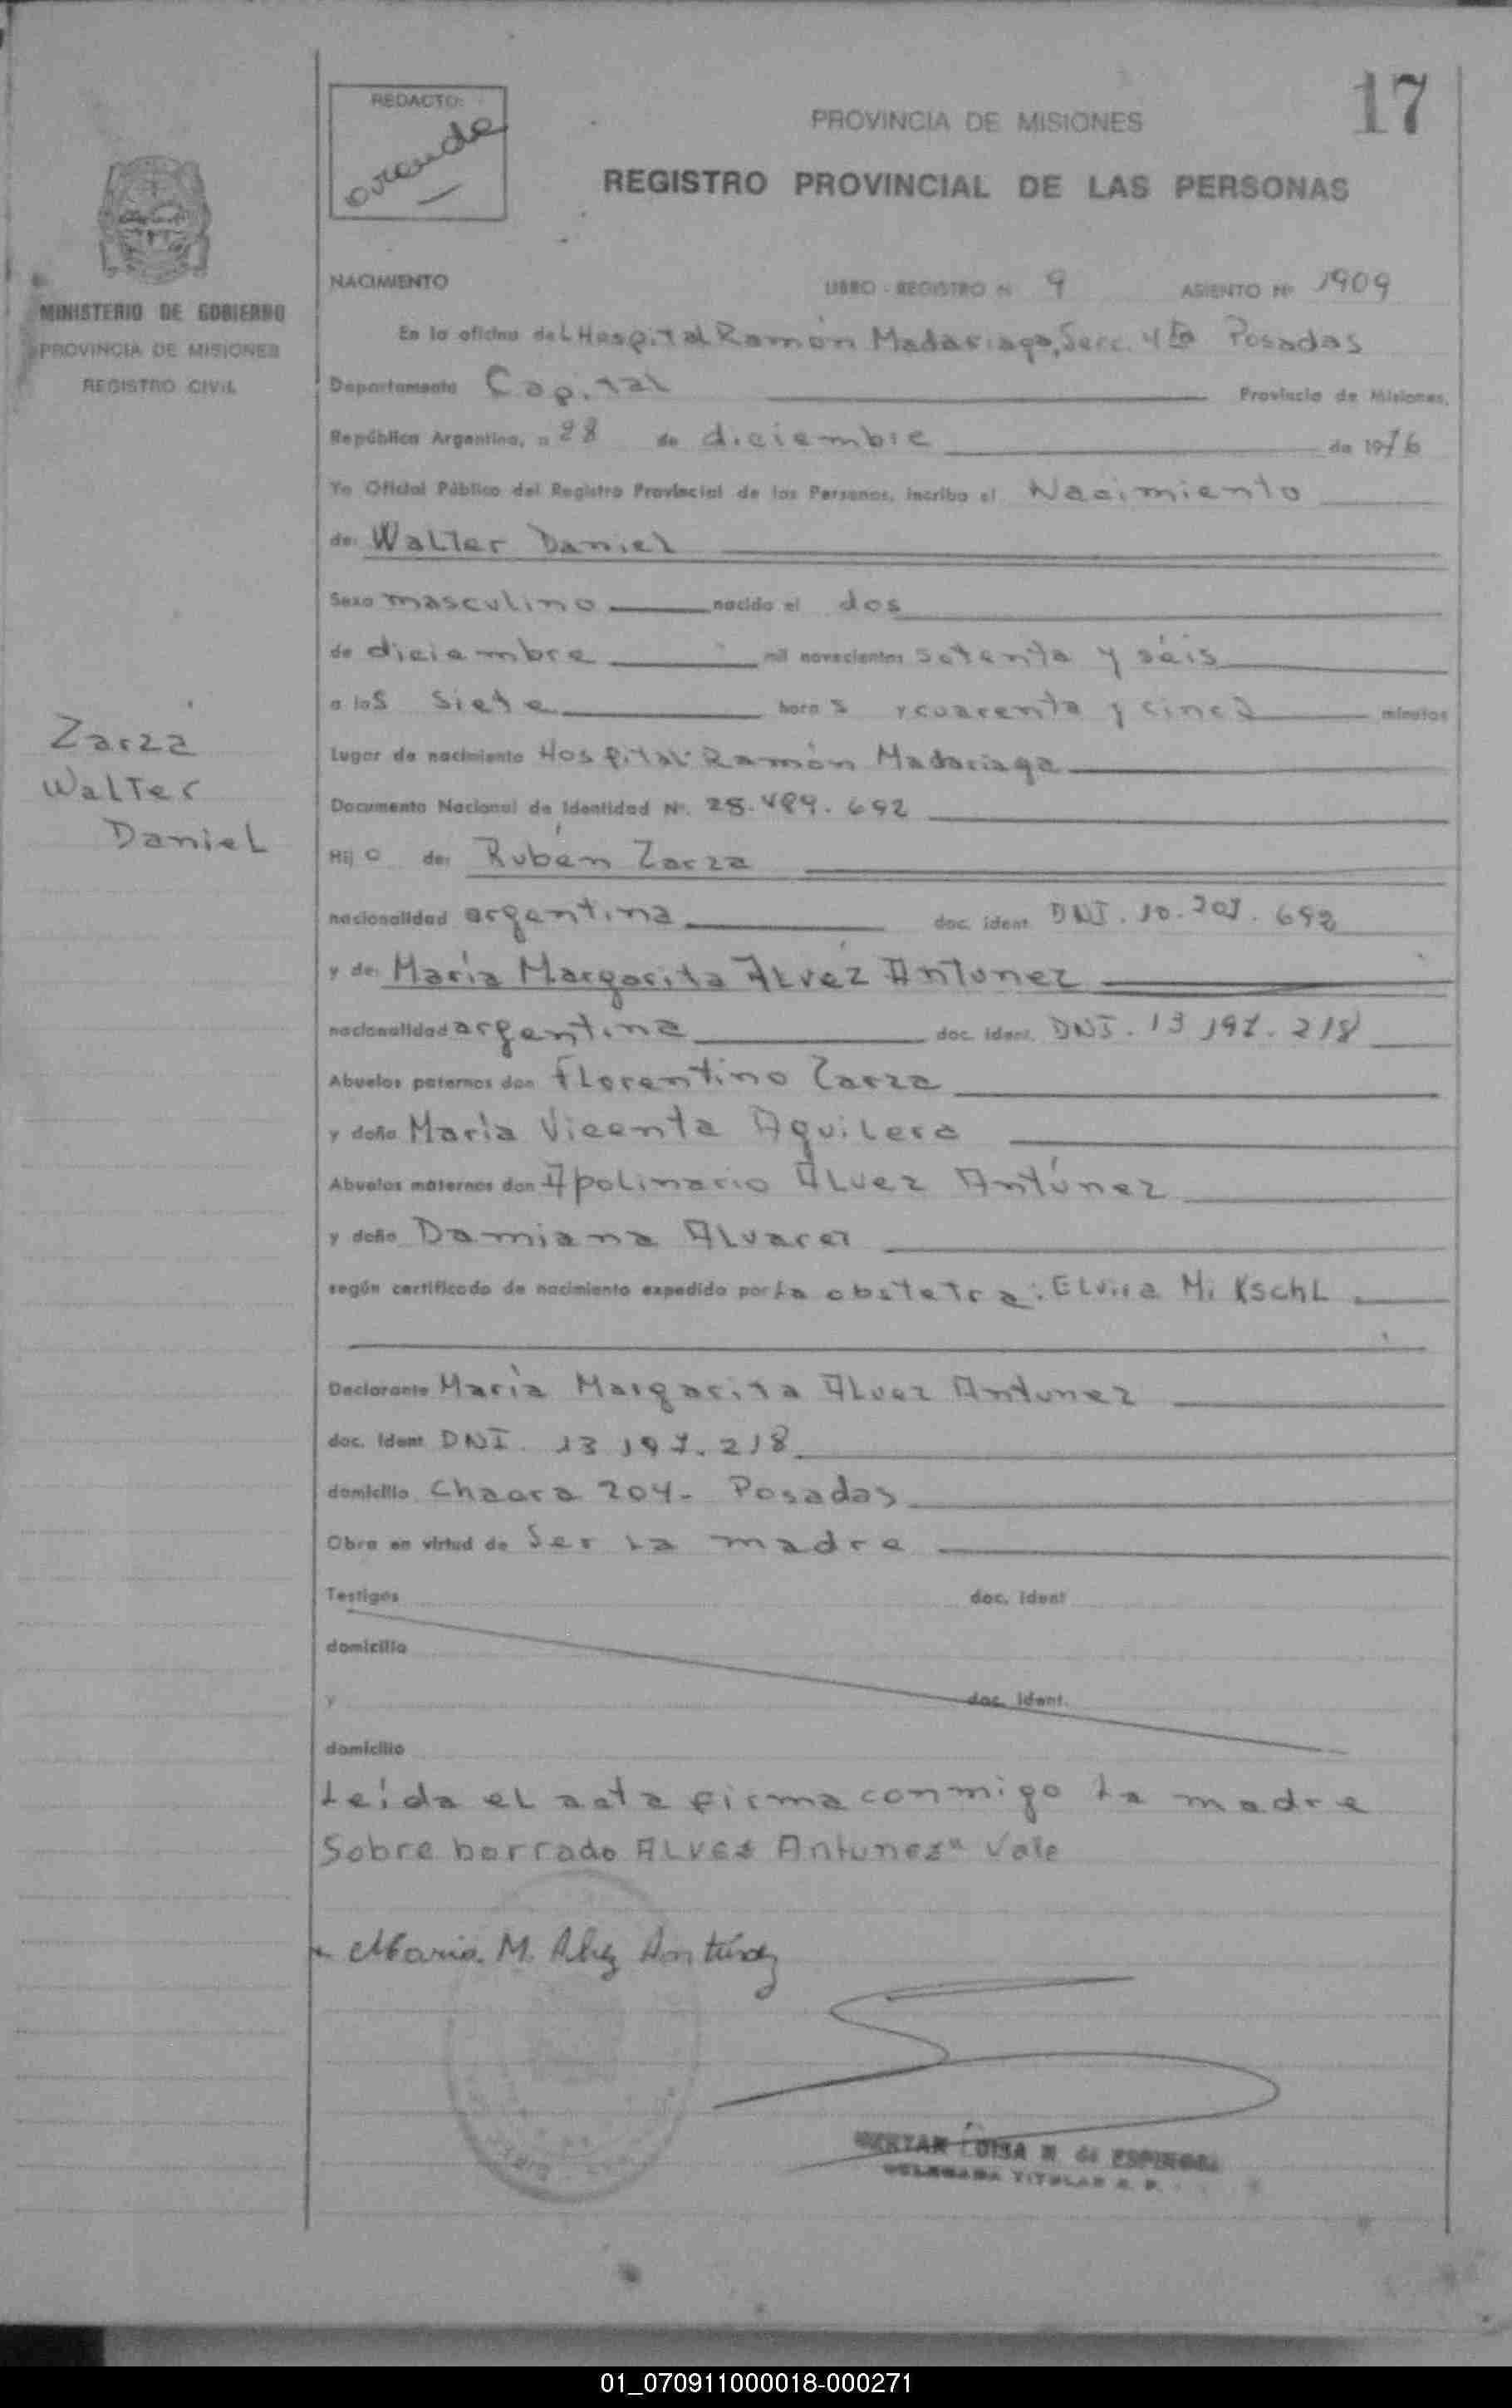 17
REDACTO:
PROVINCIA DE MISIONES
REGISTRO PROVINCIAL DE LAS PERSONAS
MINISTERIO DE GOBIERNO
PROVINCIA DE MISIONES
REGISTRO CIVIL
NACIMIENTO LIBRO - REGISTRO N 9 ASIENTO Nº 1909
En la oficina del Hospital Ramón Madariaga, Secc. 4ta Posadas
Departamento Capital Provincia de Misiones,
República Argentina, a 28 de diciembre de 1976
Yo Oficial Público del Registro Provincial de las Personas, inscribo el Nacimiento
de: Walter Daniel
Sexo masculino nacido el dos
de diciembre mil novecientos setenta y séis
a las siete horas y cuarenta y cinco minutos
Zarza
Walter
Daniel
Lugar de nacimiento Hospital Ramón Madariaga
Documento Nacional de Identidad Nº. 25.489.692
Hijo de: Rubén Zarza
nacionalidad argentina doc. ident. DNI. 10.201.692
y de: María Margarita Alvez Antunez
nacionalidad argentina doc. ident. DNI. 13 197. 218
Abuelos paternos don Florentino Zarza
y doña María Vicenta Aguilera
Abuelos maternos don Apolinario Alvez Antúnez
y doña Damiana Alvarez
según certificado de nacimiento expedido por la obstetra: Elvira Mikschl
Declarante María Margarita Alvez Antunez
doc. ident DNI. 13 197. 218
domicilio Chacra 204- Posadas
Obra en virtud de Ser la madre
Testigos doc. ident
domicilio
y doc. ident.
domicilio
Leída el acta firma conmigo la madre
Sobre borrado Alvez Antunez" Vale
Maria M. Alvez Antúnez
LUISA N. de ESPINOSA
DELEGADA TITULAR R. P.
01_070911000018-000271